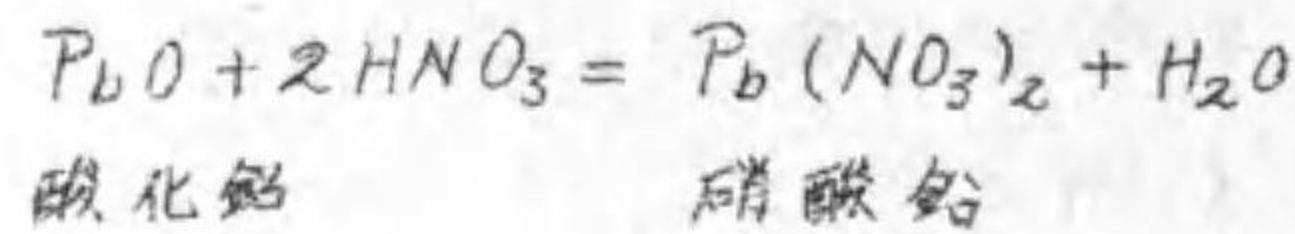 PbO + 2HNO₃ = Pb(NO₃)₂ + H₂O
酸化鉛 硝酸鉛